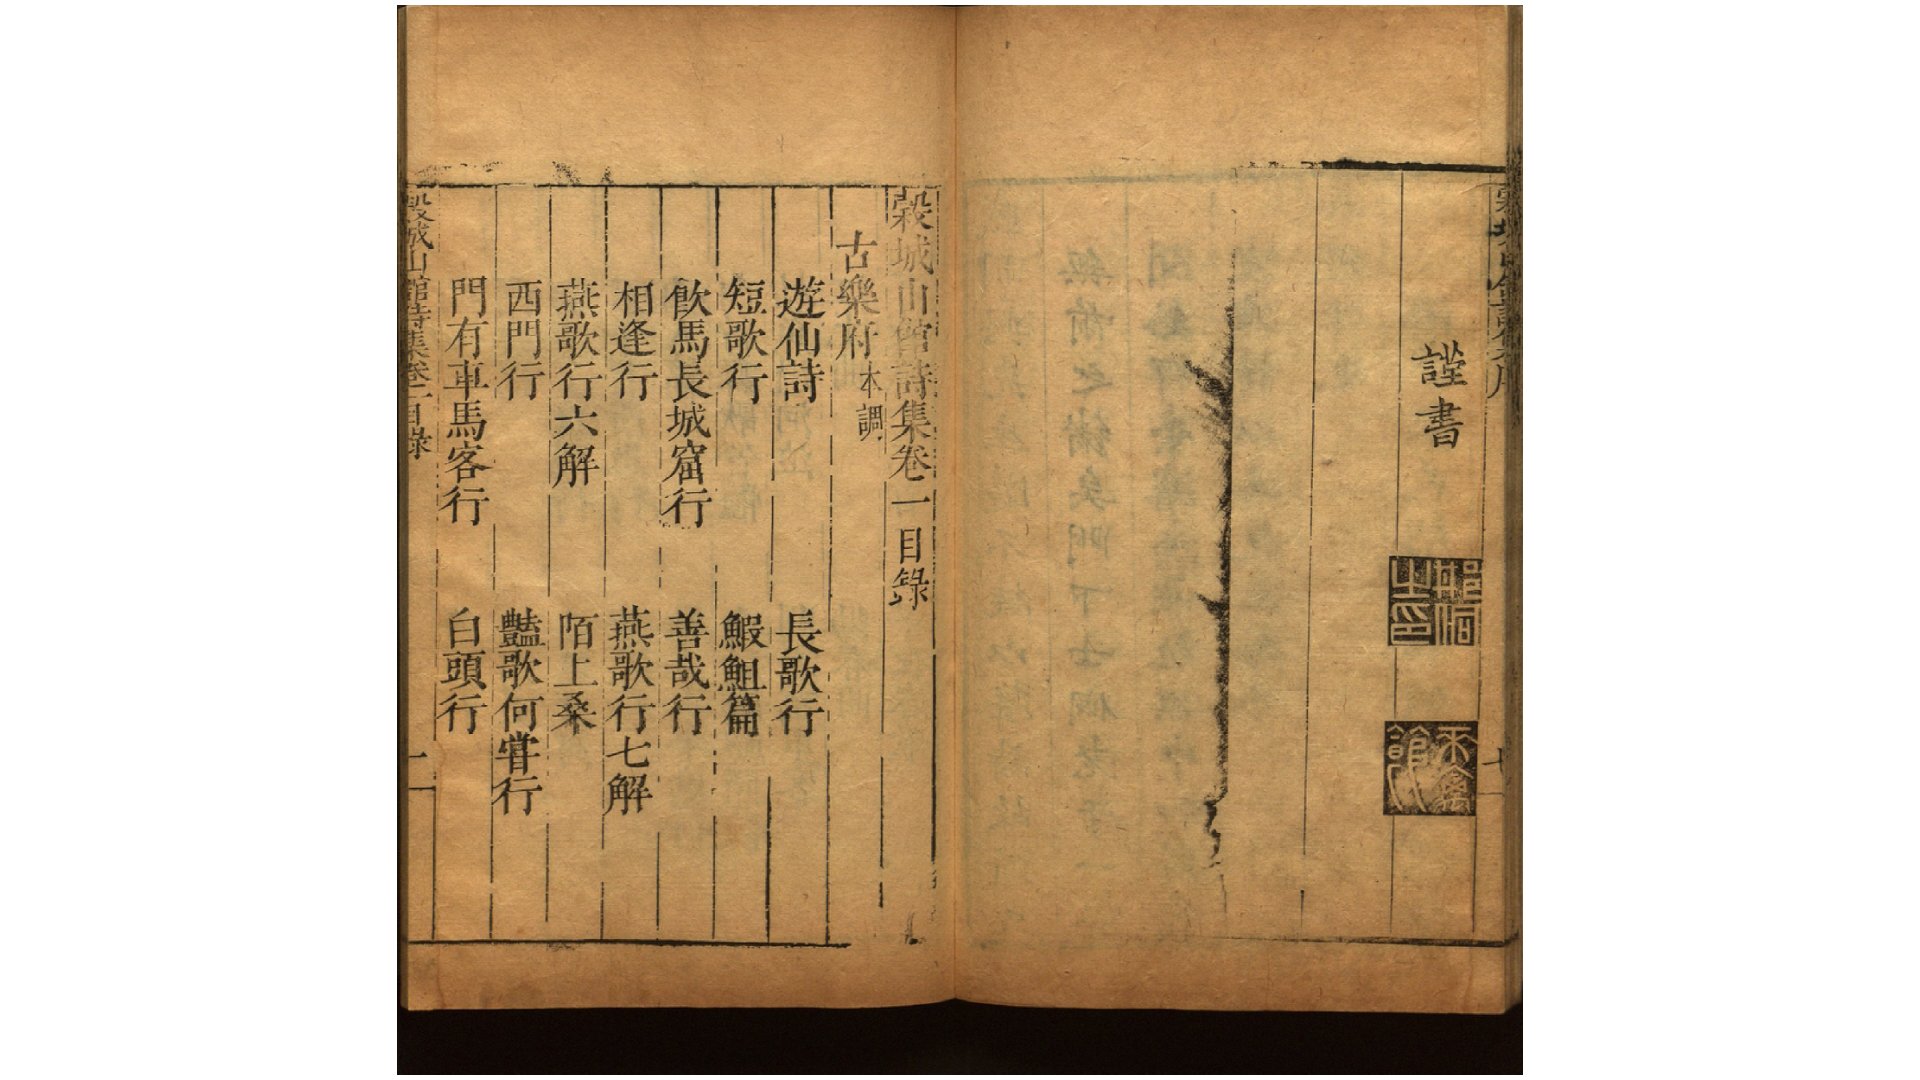 謹書
邢侗之印
穀城山館詩集卷一目錄
古樂府本調
遊仙詩 長歌行
短歌行 鰕䱇篇
飲馬長城窟行 善哉行
相逢行 燕歌行七解
燕歌行六解 陌上桑
西門行 豔歌何甞行
門有車馬客行 白頭行
穀城山館詩集卷一目錄 一